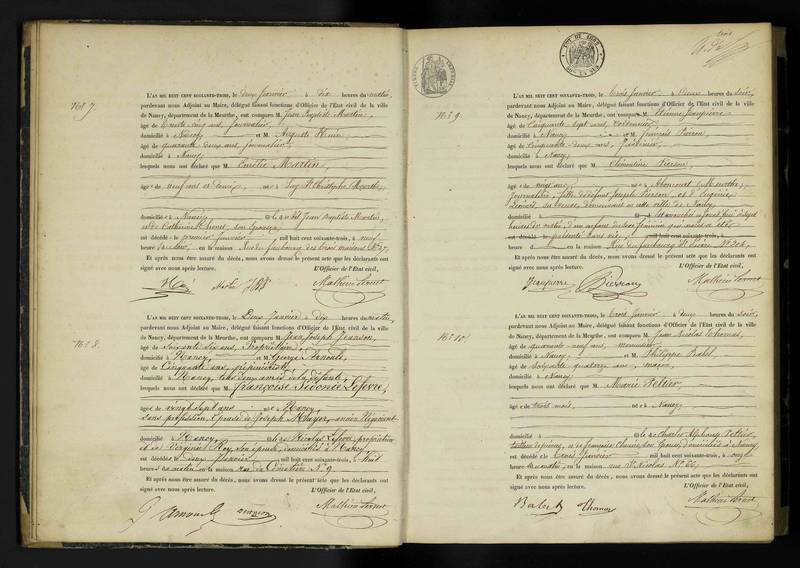 No. 7.
L'AN MIL HUIT CENT SOIXANTE-TROIS, le deux Janvier à dix heures du matin,
pardevant nous Adjoint au Maire, délégué faisant fonctions d'Officier de l'Etat civil de la ville
de Nancy, département de la Meurthe, ont comparu M. Jean Baptiste Martin,
âgé de trente cinq ans, journalier,
domicilié à Nancy et M. Auguste
âgé de quarante deux ans, journalier
domicilié à Nancy
lesquels nous ont déclaré que M. Emélie Martin,
âgée de neuf ans et demi, née à Lay St Christophe (Meurthe),
domiciliée à Nancy fille de Jean Baptiste Martin,
et de Catherine son épouse,
est décédée le premier Janvier mil huit cent soixante-trois, à neuf
heures du soir, en la maison Rue du faubourg des trois maisons No 37.
Et après nous être assuré du décès, nous avons dressé le présent acte que les déclarants ont
signé avec nous après lecture. L'Officier de l'Etat civil,
No. 8.
L'AN MIL HUIT CENT SOIXANTE-TROIS, le Deux Janvier à Dix heures du matin,
pardevant nous Adjoint au Maire, délégué faisant fonctions d'Officier de l'Etat civil de la ville
de Nancy, département de la Meurthe, ont comparu M. Jean Joseph Jeanson,
âgé de soixante six ans, Propriétaire,
domicilié à Nancy et M. George Renauld
âgé de Cinquante ans,
domicilié à Nancy, tous deux amis de la défunte,
lesquels nous ont déclaré que M. Françoise Sidonie Lefèvre,
âgée de vingt sept ans née à Nancy,
sans profession, Epouse de Joseph Mayer, ancien Négociant
domiciliée à Nancy fille de Nicolas Lefèvre, propriétaire
et de Virginie Roy, son épouse, domiciliés à Nancy
est décédée le deux Janvier mil huit cent soixante-trois, à huit
heures du matin, en la maison rue du Cimetière No 9.
Et après nous être assuré du décès, nous avons dressé le présent acte que les déclarants ont
signé avec nous après lecture. L'Officier de l'Etat civil,
Jeanson
No. 9.
L'AN MIL HUIT CENT SOIXANTE-TROIS, le Trois Janvier à Deux heures du soir,
pardevant nous Adjoint au Maire, délégué faisant fonctions d'Officier de l'Etat civil de la ville
de Nancy, département de la Meurthe, ont comparu M. Etienne Jeanpierre
âgé de Cinquante sept ans,
domicilié à Nancy et M. François Pierson,
âgé de cinquante deux ans, Jardinier,
domicilié à Nancy,
lesquels nous ont déclaré que M. Clémentine Pierson,
âgée de vingt ans, née à Aboncourt (Meurthe),
Journalière, fille de défunt Joseph Pierson, et d'Eugénie
sa veuve, demeurant en cette ville de Nancy,
domicilié à
est décédé mil huit cent soixante-trois, à
heure en la maison Rue du faubourg St Pierre No 206,
Et après nous être assuré du décès, nous avons dressé le présent acte que les déclarants ont
signé avec nous après lecture. L'Officier de l'Etat civil,
Jeanpierre Pierson
No. 10.
L'AN MIL HUIT CENT SOIXANTE-TROIS, le Trois Janvier à deux heures du soir,
pardevant nous Adjoint au Maire, délégué faisant fonctions d'Officier de l'Etat civil de la ville
de Nancy, département de la Meurthe, ont comparu M. Jean Nicolas Thomas,
âgé de quarante-neuf ans,
domicilié à Nancy, et M. Philippe
âgé de soixante quatorze ans,
domicilié à Nancy
lesquels nous ont déclaré que M. Marie Peltier,
âgée de trois mois, née à Nancy,
domicilié à fille de Charles Alphonse Peltier,
et de Françoise son épouse, domiciliés à Nancy
est décédée le Trois Janvier mil huit cent soixante-trois, à onze
heures du matin, en la maison rue St Nicolas No 66.
Et après nous être assuré du décès, nous avons dressé le présent acte que les déclarants ont
signé avec nous après lecture. L'Officier de l'Etat civil,
Thomas